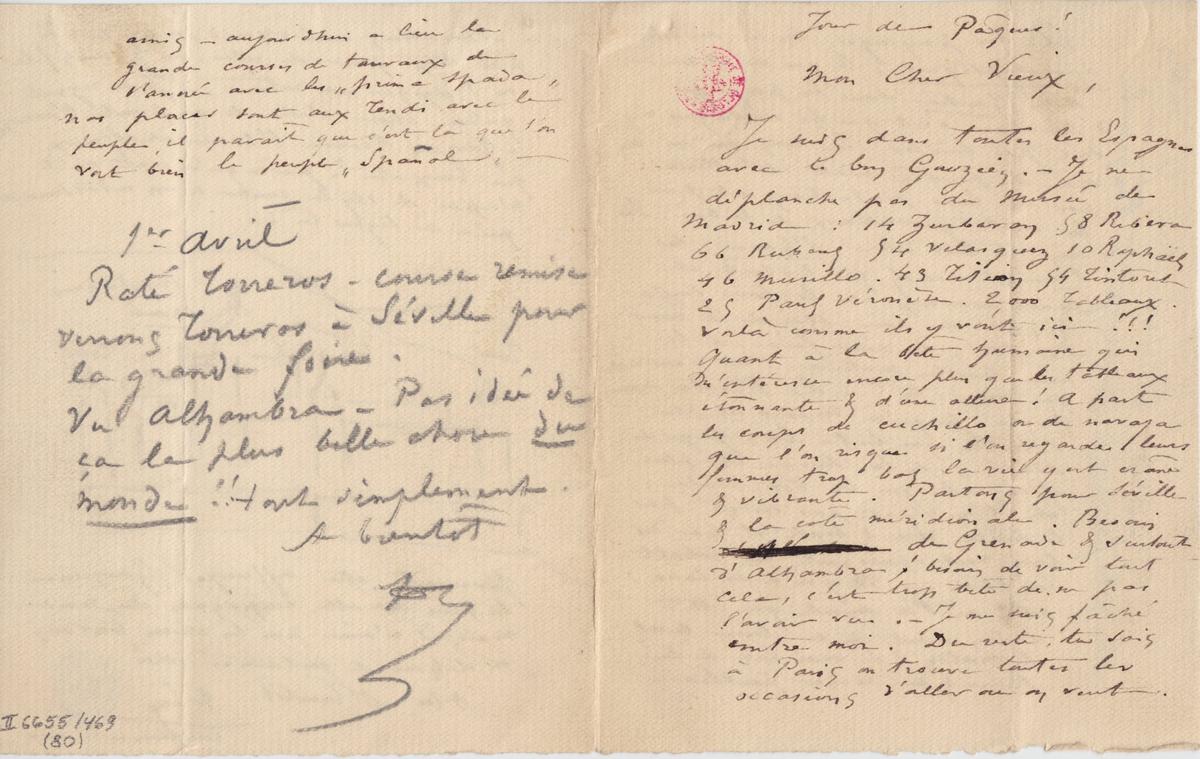 Jour de Pâques!
Mon Cher Vieux,
Je suis dans toutes les Espagnes
avec le bon Gouzien. — Je ne
déplanche pas du Musée de
Madrid : 14 Zurbaran 58 Ribera
66 Rubens 54 Velasquez 10 Raphaël
46 Murillo. 43 Titien 54 Tintoret
25 Paul Véronèse. 2000 tableaux.
Voilà comme ils y vont ici !!!
Quant à la bête humaine qui
m'intéresse encore plus que les tableaux
étonnante & d'une allure! A part
les coups de cuchillo ou de navaja
que l'on risque si l'on regarde leurs
femmes trop bas la vie y est crâne
& vibrante. Partons pour Séville
& la côte méridionale. Besoin
de Grenade & surtout
d'Alhambra, besoin de voir tout
cela, c'est trop bête de ne pas
l'avoir vu. — Je me suis fâché
contre moi. Du reste, tu sais
à Paris on trouve toutes les
occasions d'aller où on veut.
amis — aujourd'hui a lieu la
grande courses de taureaux de
l'année avec les „prima spada„
nos places sont aux Tendi avec le
peuple, il parait que c'est là que l'on
voit bien le peuple „Español„ —
1er avril
Raté Torreros — course remise
verrons Torreros à Séville pour
la grande foire.
Vu Alhambra — Pas idée de
ça la plus belle chose du
monde !! tout simplement.
A bientôt
II 6655/469
(80)